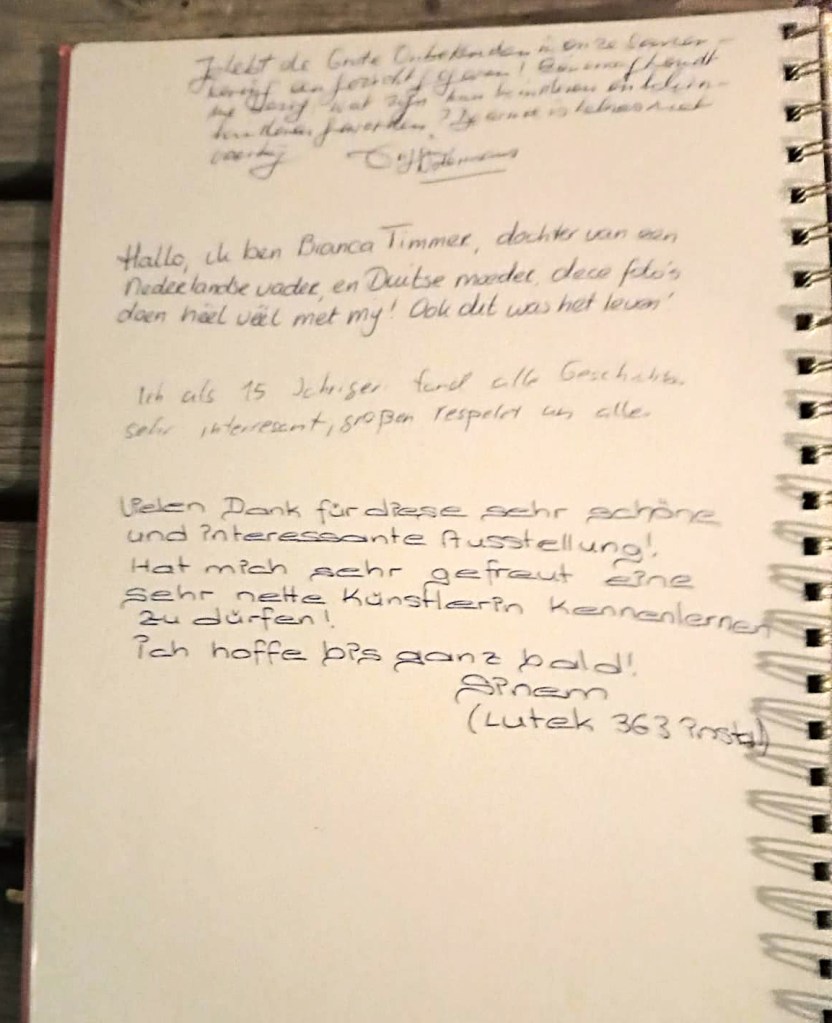 Jij hebt de Grote Onbekenden in onze samen-
leving een gezicht gegeven!
wat zijn hun kinderen en klein-
kinderen geworden?
voorbij
Hallo, ik ben Bianca Timmer, dochter van een
Nederlandse vader, en Duitse moeder, deze foto's
doen héél véél met my! Ook dit was het leven'
Ich als 15 Jähriger fand alle Geschichten
sehr interresant, großen respekt an alle.
Vielen Dank für diese sehr schöne
und interessante Ausstellung!
Hat mich sehr gefreut eine
sehr nette Künstlerin kennenlernen
zu dürfen!
ich hoffe bis ganz bald!
Sinem
(Lutek 363 insta)